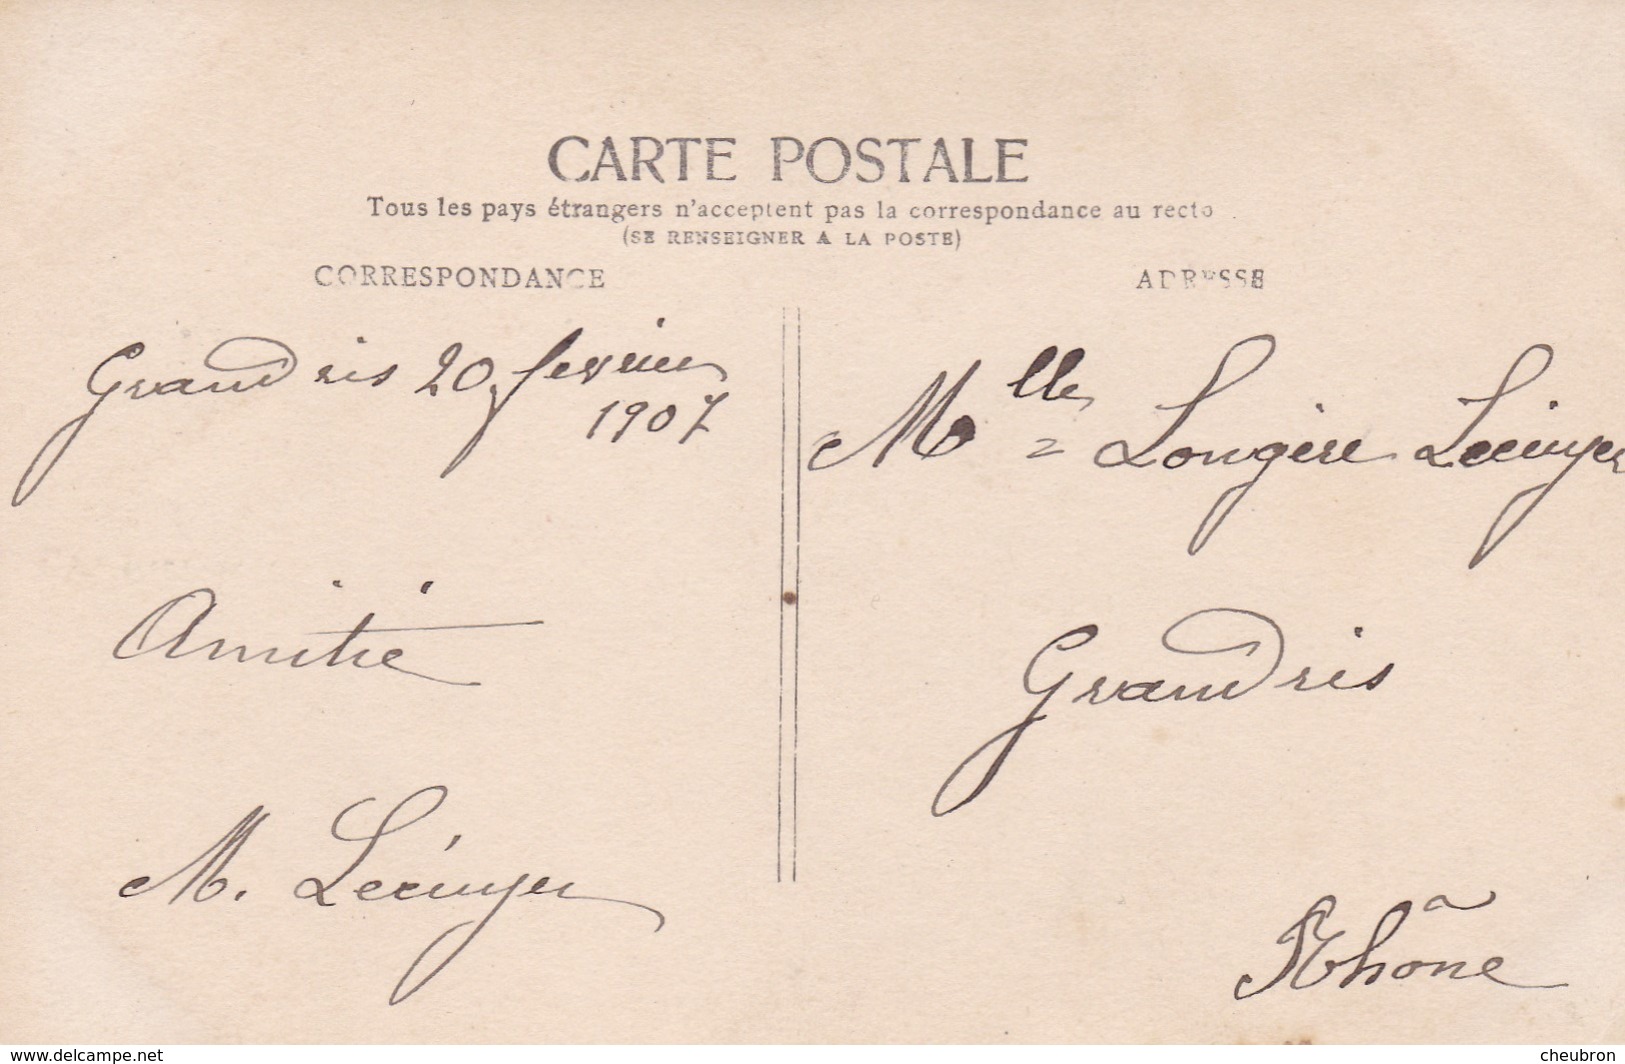 CARTE POSTALE
Tous les pays étrangers n'acceptent pas la correspondance au recto
(SE RENSEIGNER A LA POSTE)
CORRESPONDANCE
ADRESSE
Grandris 20 fevrier
1907
Amitié
M.
Mlle Longère
Grandris
Rhône
www.delcampe.net
cheubron